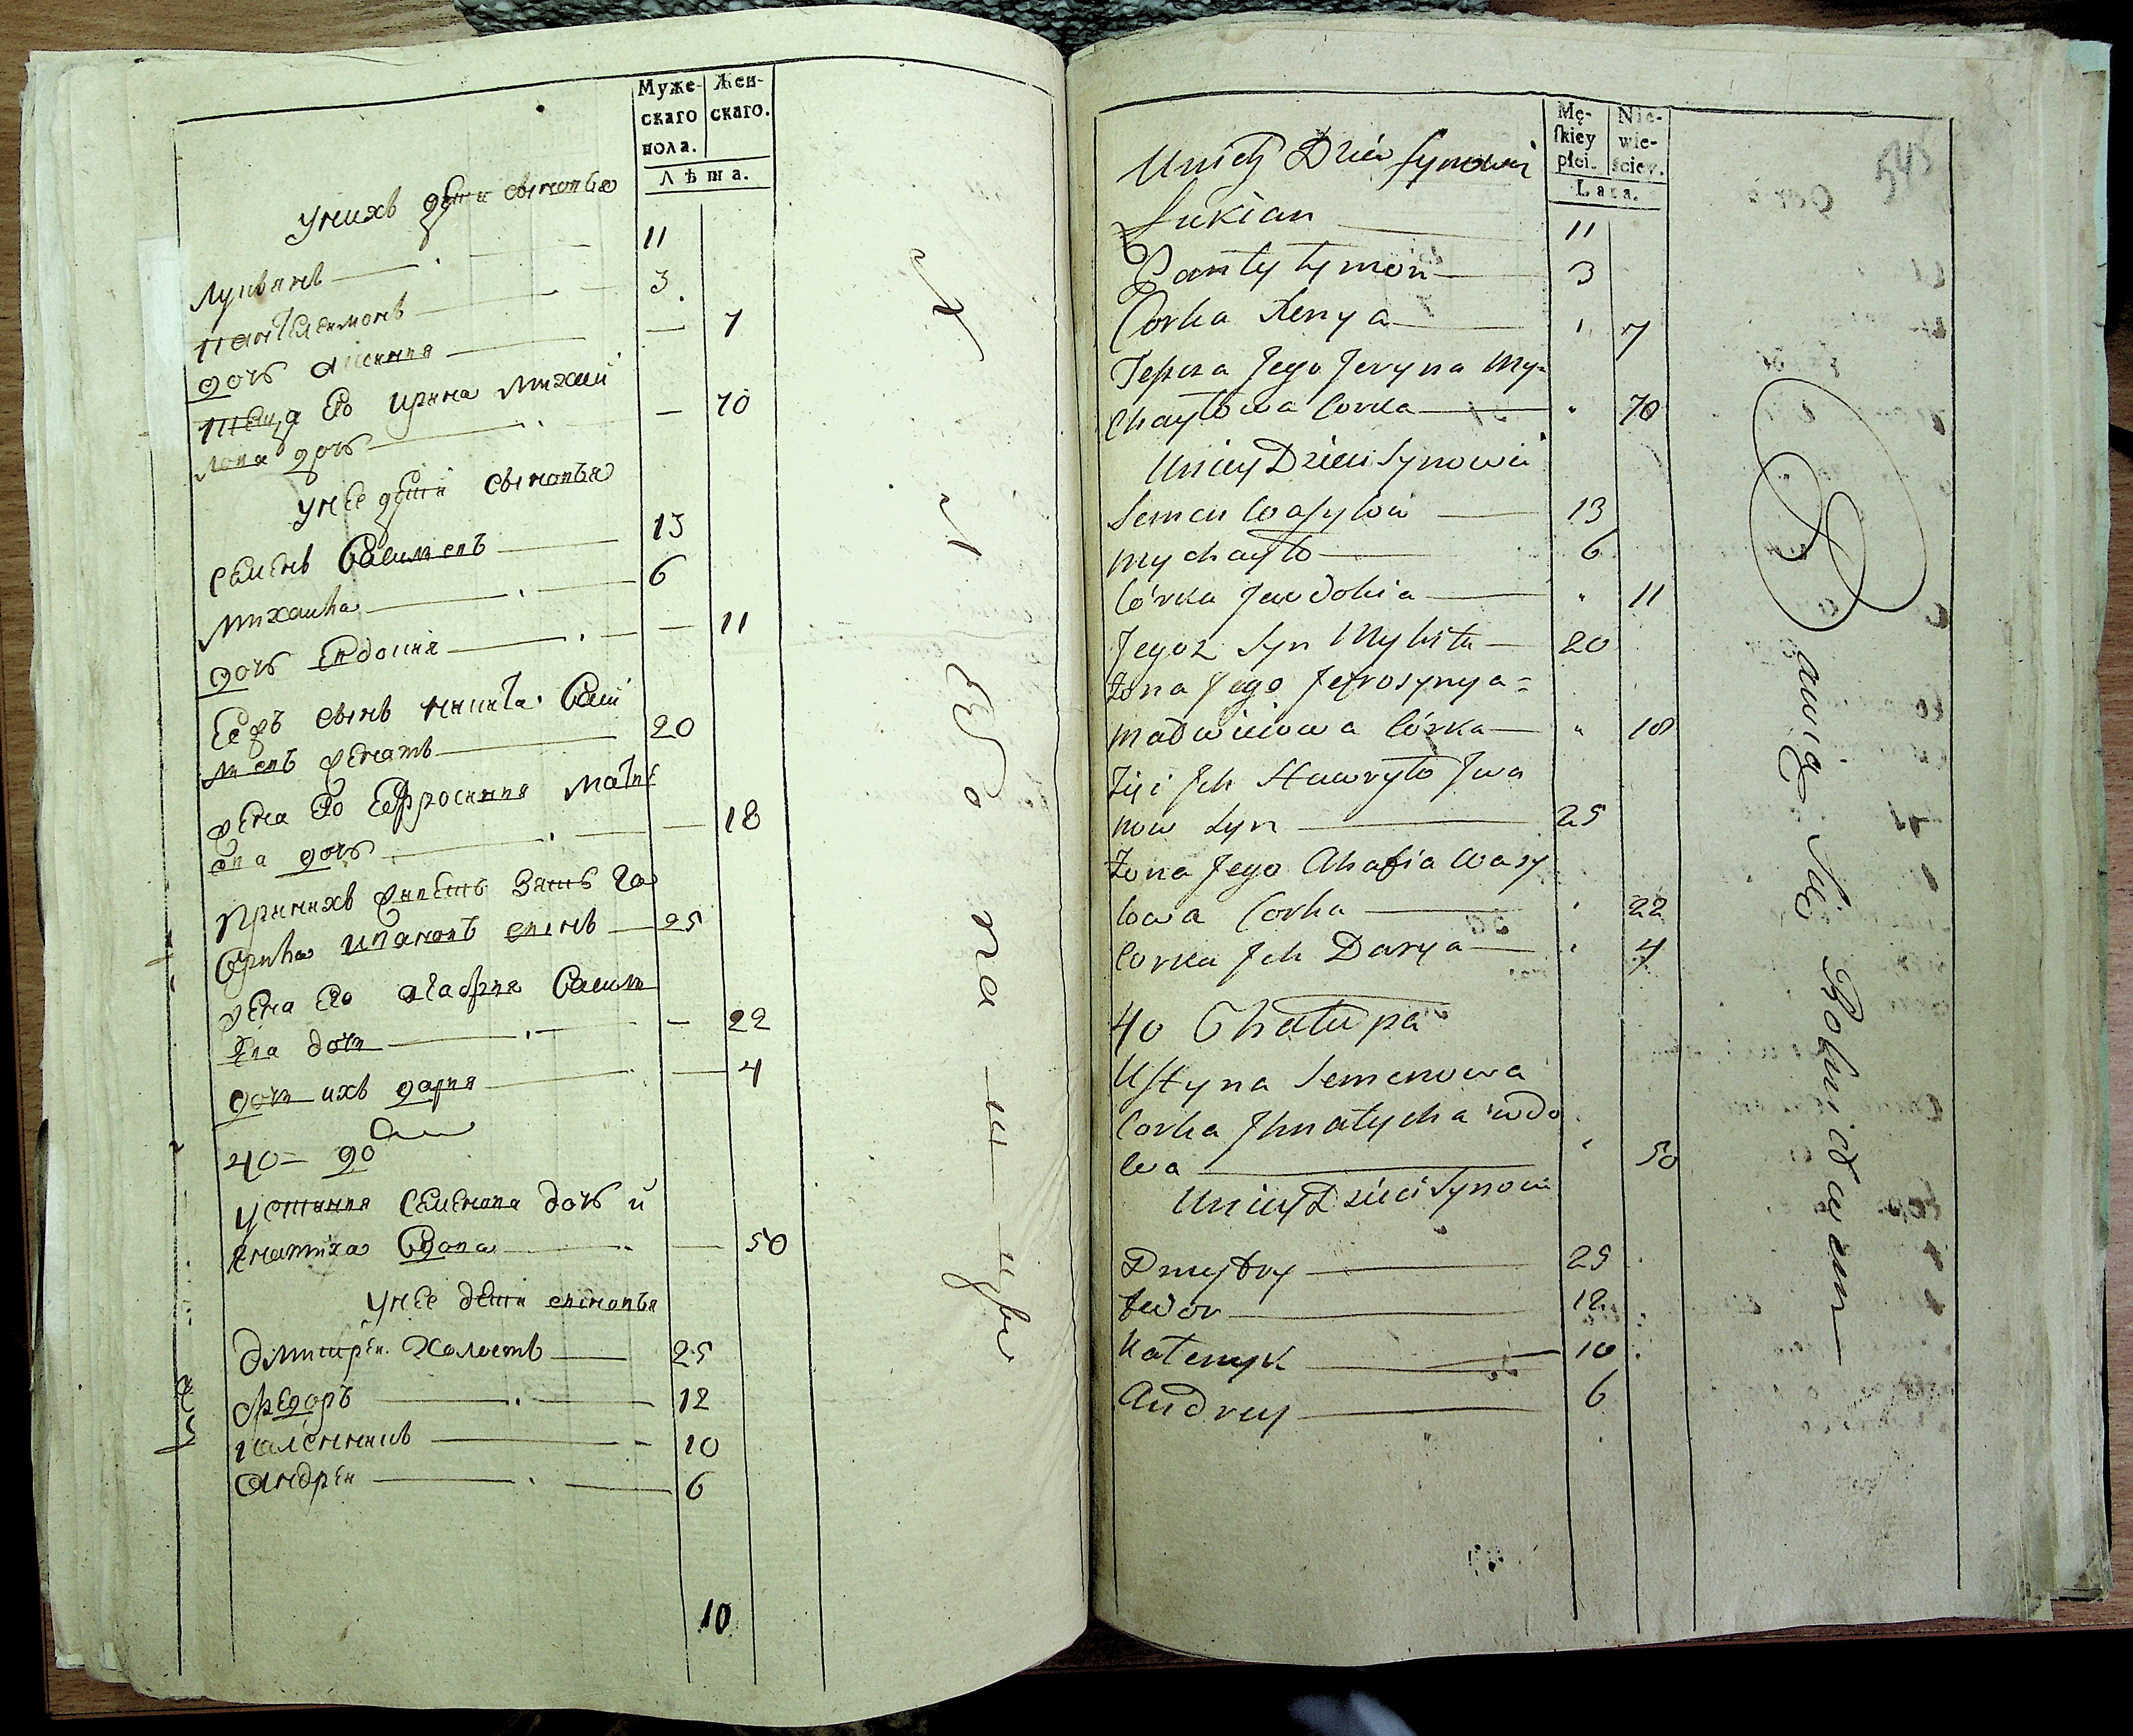 Муже-
скаго
пола.
Жен-
скаго.
Лѣта.
У нихъ дѣти сыновья
Лукьянъ 11
Пантелеимонъ 3
дочь Аксиния — 7
теща его Ирина Михай
лова дочь — 70
У нее дѣти сыновья
Семенъ Васильевъ 13
Михайла 6
дочь Евдокия — 11
Ее же сынъ Никита Васи
льевъ женатъ 20
жена его Ефросиния Матве
ева дочь — 18
При нихъ живетъ зять Га
врила Ивановъ сынъ 25
жена его Агафия Василь
ева дочь — 22
дочь ихъ Дария — 4
40 = до
Устиния Семенова дочь И
гнатиха вдова — 50
У нее дѣти сыновья
Дмитрей холостъ 25
Федоръ 12
Калениикъ 10
Андрей 6
10
Mę-
skiey
płci.
Nie-
wie-
ściey.
Lata.
545
U nich Dzieci Synowi
Lukian 11
Pantylymon 3
Corka Xenya " 7
Teszcza Jego Jeryna My=
chayłowa Corka " 70
U niey Dzieci Synowie
Semen Wasylow 13
Mychayło 6
Córka Jewdokia " 11
Jegoz Syn Mykita 20
Zona Jego Jefrosynya =
Madwieiowa Córka " 18
Zięć Jch Hawryło Jwa
now Syn 25
Zona Jego Ahafia Wasy
lowa Corka " 22
Corka Jch Darya " 4
40 Chałupa
Ustyna Semenowa
Corka Jhnatycha wdo
wa " 50
U niey Dzieci Synowie
Dmytry 25
Fedor 12
Kalenyk 10
Andrey 6